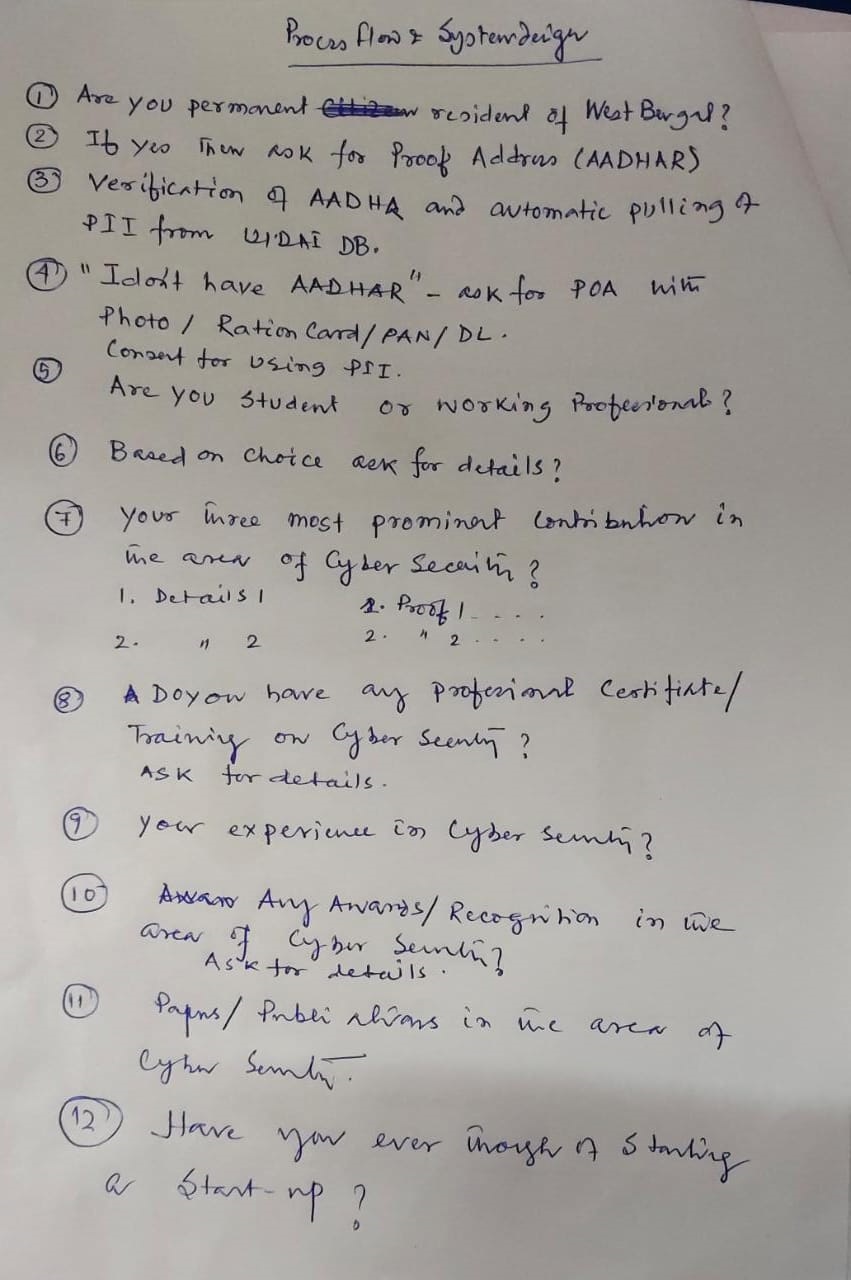 Process flow & System design
① Are you permanent resident of West Bengal?
② If yes Then ask for Proof Address (AADHAR)
③ Verification of AADHA and automatic pulling of
PII from UIDAI DB.
④ "I don't have AADHAR" - ask for POA with
Photo / Ration Card / PAN / DL.
Consent for using PII.
⑤ Are you student or working Professional?
⑥ Based on choice ask for details?
⑦ your three most prominent contribution in
the area of Cyber Security?
1. Details 1 1. Proof 1 . . . .
2. " 2 2. " 2 . . . .
⑧ Do you have any professional Certificate/
Training on Cyber Security?
ASK for details.
⑨ your experience in Cyber Security?
⑩ Any Awards/ Recognition in the
area of Cyber Security?
Ask for details.
⑪ Papers/ Publications in the area of
Cyber Security.
⑫ Have you ever though of Starting
a Start-up?